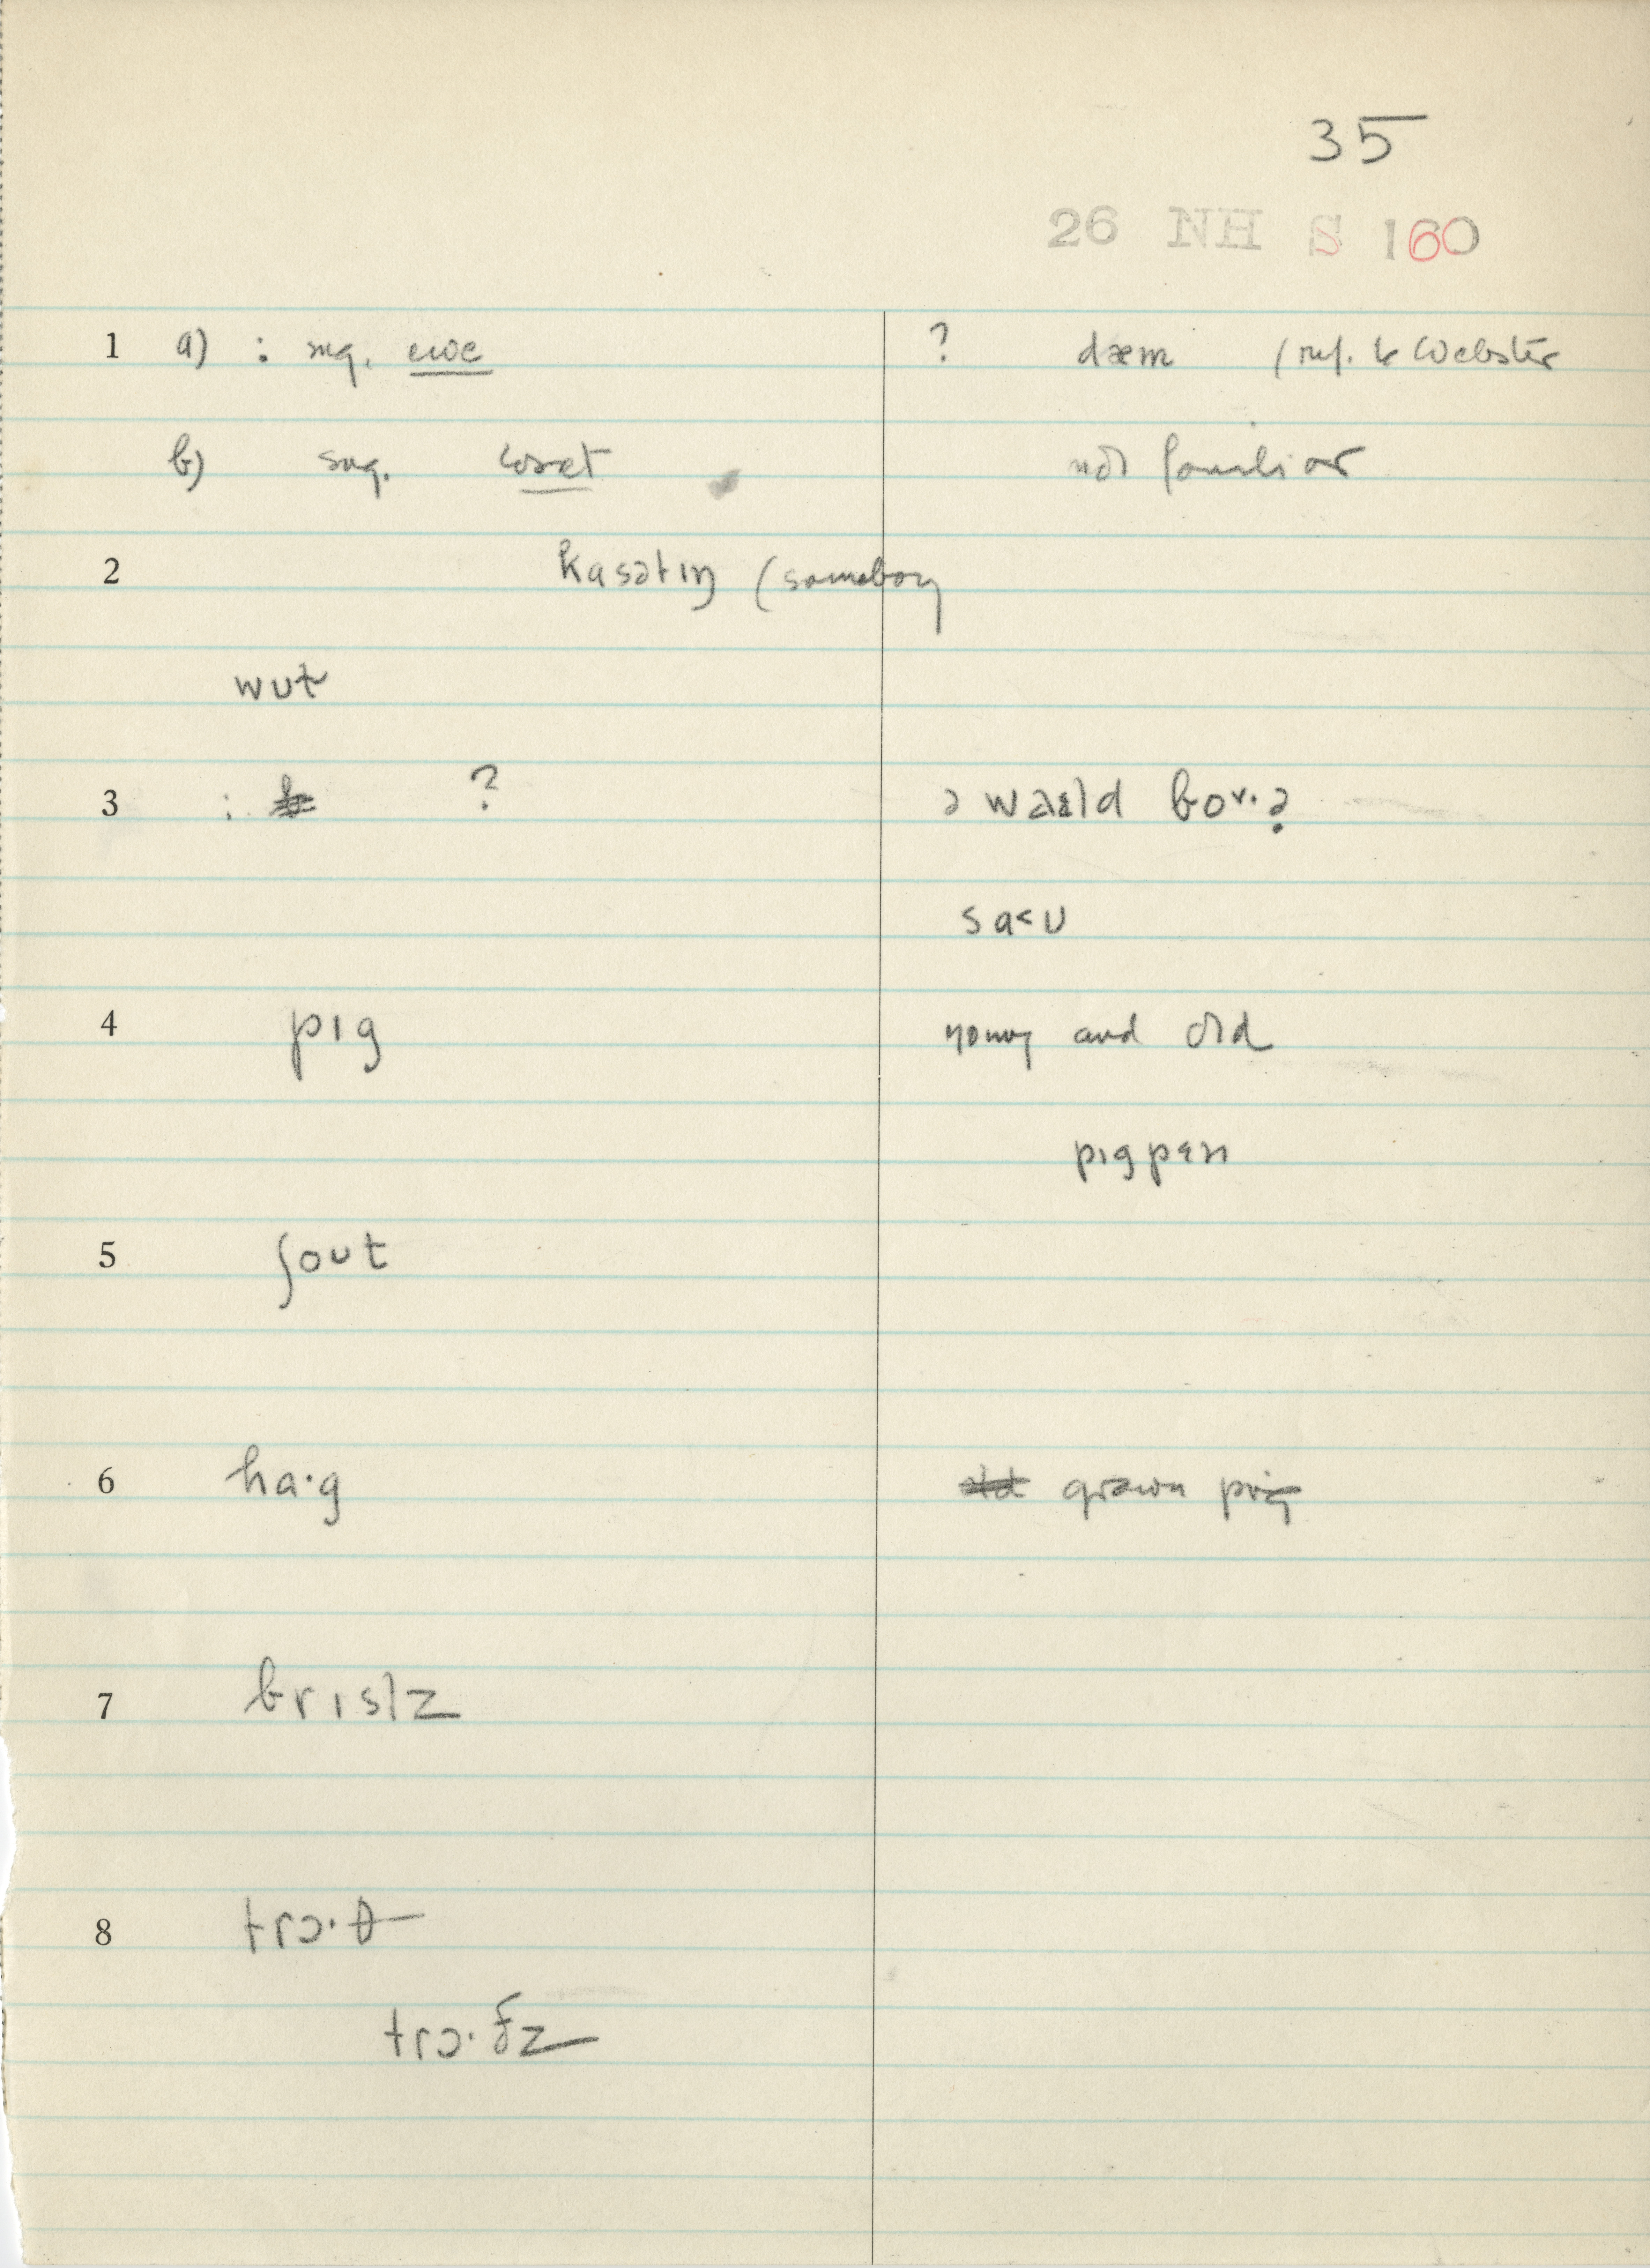 35
26 NH S 160
1 a) : sug. ewe ? dæm (ref. to Webster
b) sug. cosset not familiar
2 kasətɪŋ (somebody
wʊt
3 : ? ə waɪld bov·ə
saʊ
4 pɪg young and old
pɪgpɛn
5 ʃoʊt
6 ha·g old grown pig
7 brɪslz
8 trɔ·θ
trɔ·ðz